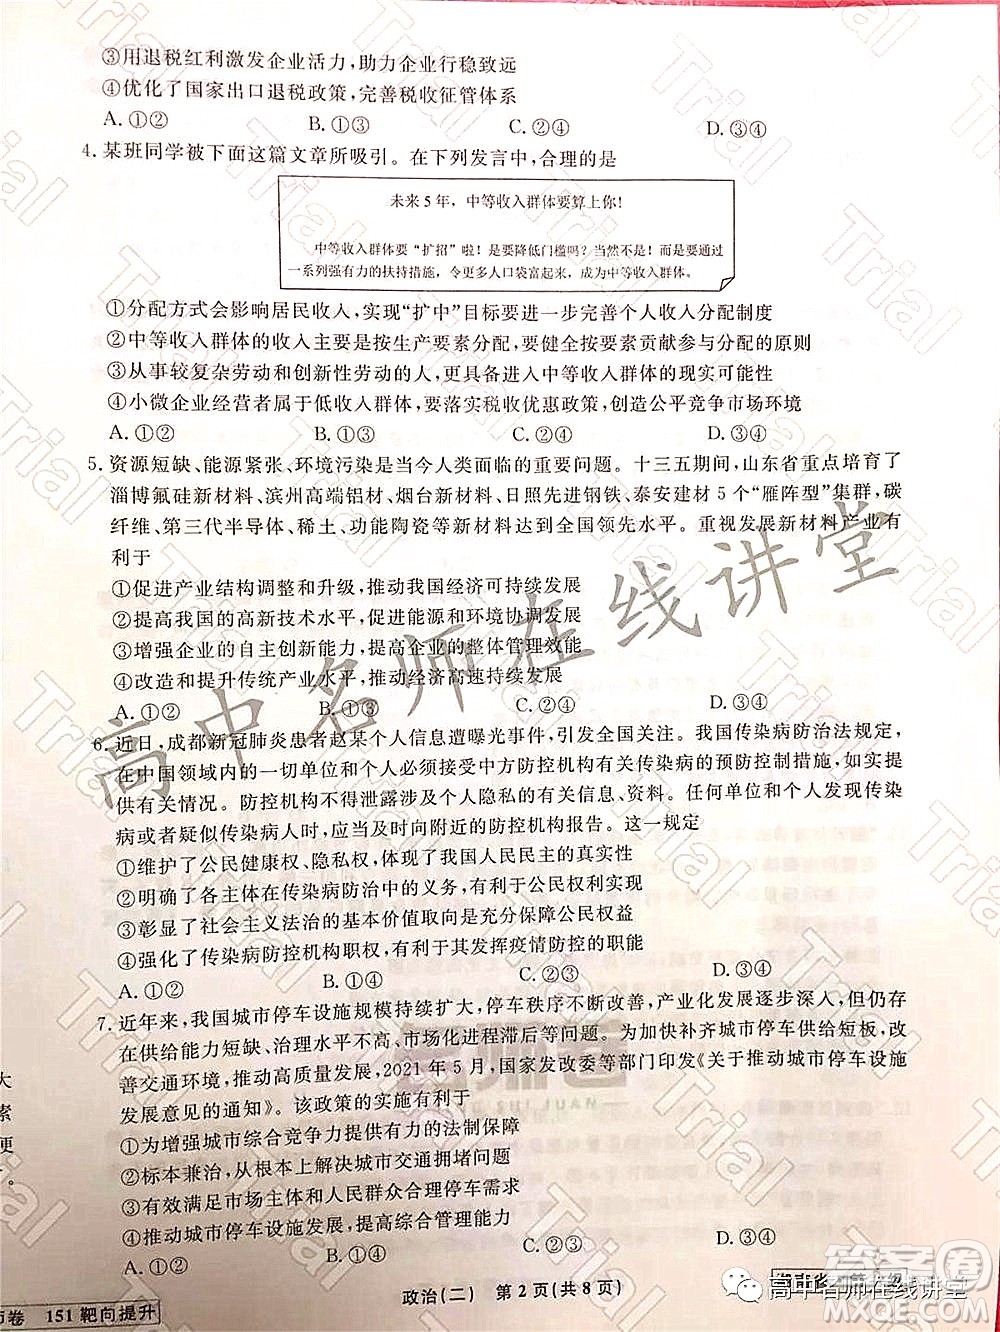 ③用退税红利激发企业活力，助力企业行稳致远
④优化了国家出口退税政策，完善税收征管体系
A. ①②　B. ①③　C. ②④　D. ③④
4. 某班同学被下面这篇文章所吸引。在下列发言中，合理的是
未来 5 年，中等收入群体要算上你！
中等收入群体要“扩招”啦！是要降低门槛吗？当然不是！而是要通过
一系列强有力的扶持措施，令更多人口袋富起来，成为中等收入群体。
①分配方式会影响居民收入，实现“扩中”目标要进一步完善个人收入分配制度
②中等收入群体的收入主要是按生产要素分配，要健全按要素贡献参与分配的原则
③从事较复杂劳动和创新性劳动的人，更具备进入中等收入群体的现实可能性
④小微企业经营者属于低收入群体，要落实税收优惠政策，创造公平竞争市场环境
A. ①②　B. ①③　C. ②④　D. ③④
5. 资源短缺、能源紧张、环境污染是当今人类面临的重要问题。十三五期间，山东省重点培育了
淄博氟硅新材料、滨州高端铝材、烟台新材料、日照先进钢铁、泰安建材 5 个“雁阵型”集群，碳
纤维、第三代半导体、稀土、功能陶瓷等新材料达到全国领先水平。重视发展新材料产业有
利于
①促进产业结构调整和升级，推动我国经济可持续发展
②提高我国的高新技术水平，促进能源和环境协调发展
③增强企业的自主创新能力，提高企业的整体管理效能
④改造和提升传统产业水平，推动经济高速持续发展
A. ①②　B. ①④　C. ②③　D. ③④
6. 近日，成都新冠肺炎患者赵某个人信息遭曝光事件，引发全国关注。我国传染病防治法规定，
在中国领域内的一切单位和个人必须接受中方防控机构有关传染病的预防控制措施，如实提
供有关情况。防控机构不得泄露涉及个人隐私的有关信息、资料。任何单位和个人发现传染
病或者疑似传染病人时，应当及时向附近的防控机构报告。这一规定
①维护了公民健康权、隐私权，体现了我国人民民主的真实性
②明确了各主体在传染病防治中的义务，有利于公民权利实现
③彰显了社会主义法治的基本价值取向是充分保障公民权益
④强化了传染病防控机构职权，有利于其发挥疫情防控的职能
A. ①②　B. ①④　C. ②③　D. ③④
7. 近年来，我国城市停车设施规模持续扩大，停车秩序不断改善，产业化发展逐步深入，但仍存
在供给能力短缺、治理水平不高、市场化进程滞后等问题。为加快补齐城市停车供给短板，改
善交通环境，推动高质量发展，2021 年 5 月，国家发改委等部门印发《关于推动城市停车设施
发展意见的通知》。该政策的实施有利于
①为增强城市综合竞争力提供有力的法制保障
②标本兼治，从根本上解决城市交通拥堵问题
③有效满足市场主体和人民群众合理停车需求
④推动城市停车设施发展，提升综合管理能力
A. ①②　B. ①④　C. ②③　D. ③④
大
素
更
。
政治（二）　第 2 页（共 8 页）
师卷　151 靶向提升
高中名师在线讲堂
高中名师在线讲堂
答案圈
Trial